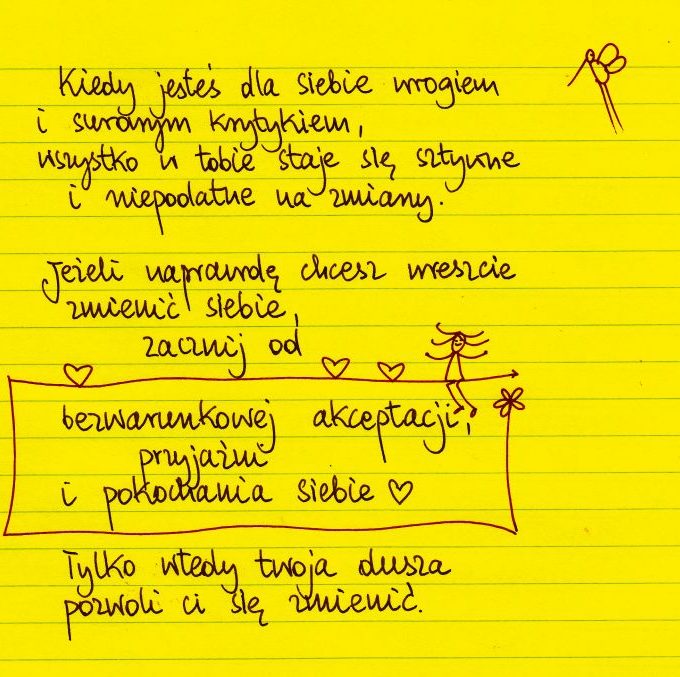 Kiedy jesteś dla siebie wrogiem
i surowym krytykiem,
wszystko w tobie staje się sztywne
i niepodatne na zmiany.
Jeżeli naprawdę chcesz wreszcie
zmienić siebie,
zacznij od
bezwarunkowej akceptacji,
przyjaźni
i pokochania siebie
Tylko wtedy twoja dusza
pozwoli ci się zmienić.